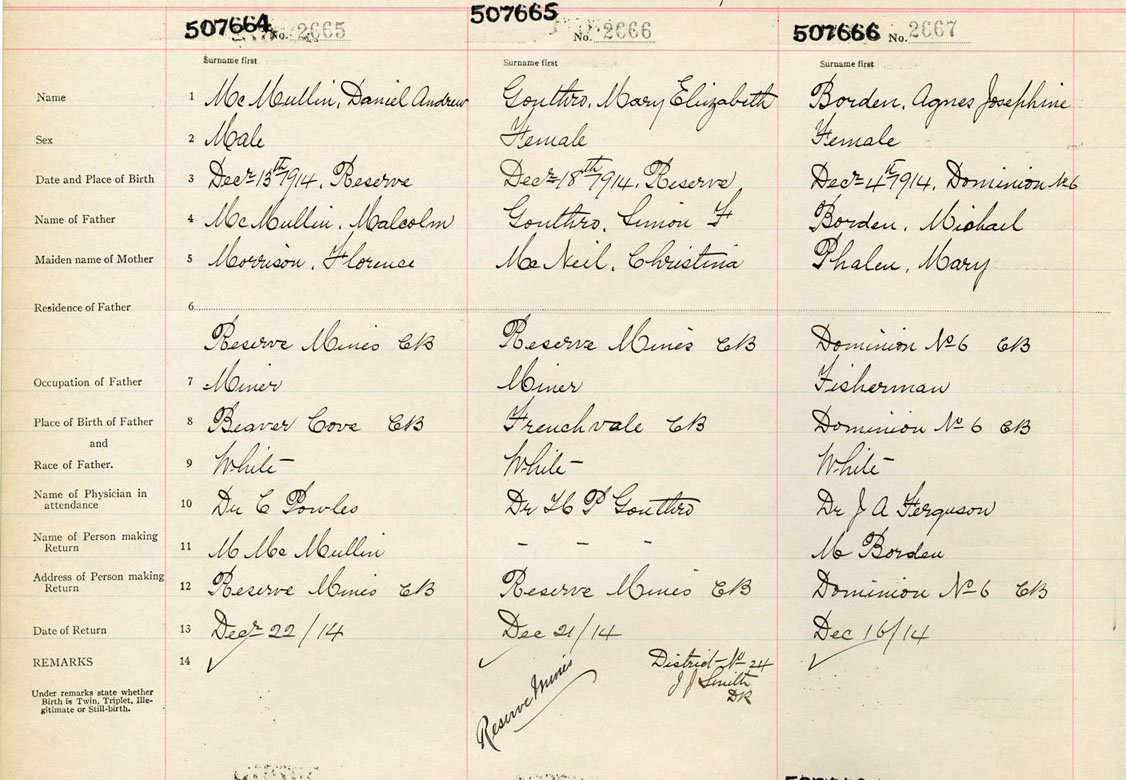 507664 No. 2665 507665 No. 2666 507666 No. 2667
Surname first Surname first Surname first
Name 1 McMullin, Daniel Andrew Gouthro, Mary Elizabeth Borden, Agnes Josephine
Sex 2 Male Female Female
Date and Place of Birth 3 Decr 13th 1914, Reserve Decr 18th 1914, Reserve Decr 4th 1914, Dominion No 6
Name of Father 4 McMullin, Malcolm Gouthro, Simon F Borden, Michael
Maiden name of Mother 5 Morrison, Florence McNeil, Christina Phalen, Mary
Residence of Father 6
Reserve Mines CB Reserve Mines CB Dominion No 6 CB
Occupation of Father 7 Miner Miner Fisherman
Place of Birth of Father 8 Beaver Cove CB Frenchvale CB Dominion No 6 CB
and
Race of Father. 9 White White White
Name of Physician in
attendance 10 Dr C Powles Dr H P Gouthro Dr J A Ferguson
Name of Person making
Return 11 M McMullin - - - M Borden
Address of Person making
Return 12 Reserve Mines CB Reserve Mines CB Dominion No 6 CB
Date of Return 13 Decr 22/14 Dec 21/14 Dec 16/14
REMARKS 14 District No 24
J J Smith
DR
Reserve Mines
Under remarks state whether
Birth is Twin, Triplet, Ille-
gitimate or Still-birth.